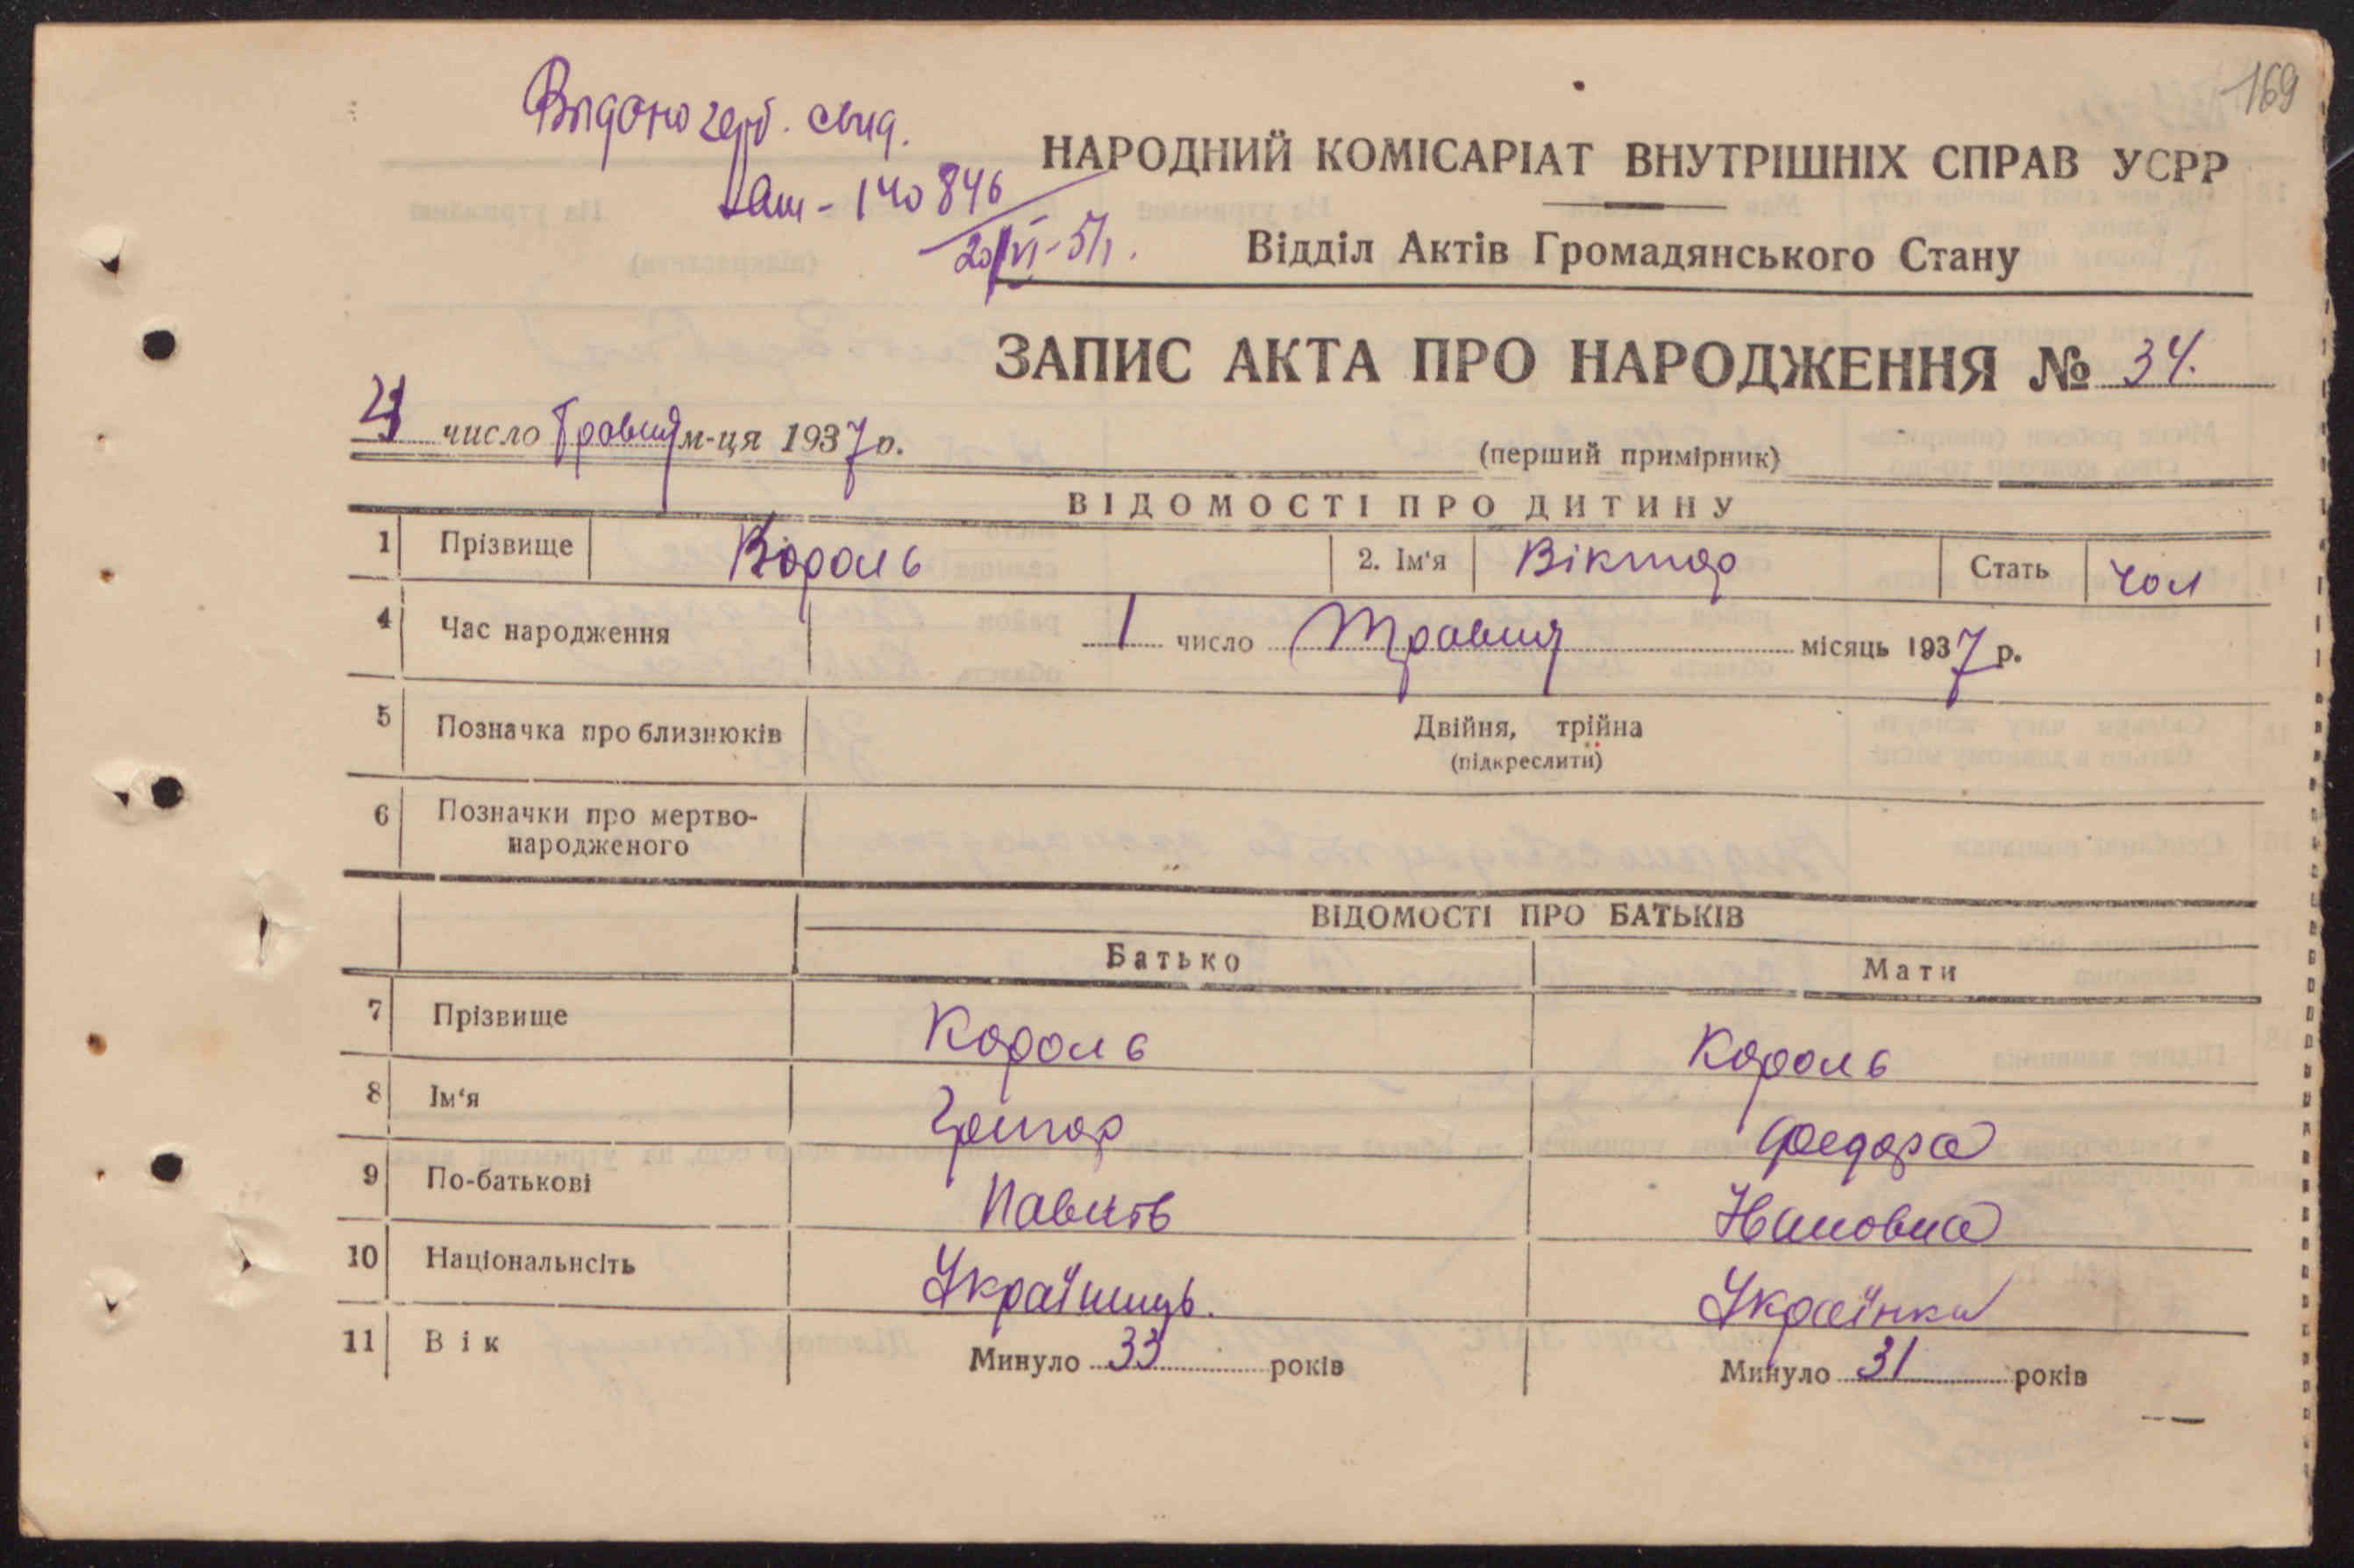 169
Видано герб. свид.
140846
20/VI-51.
НАРОДНИЙ КОМІСАРІАТ ВНУТРІШНІХ СПРАВ УСРР
Відділ Актів Громадянського Стану
ЗАПИС АКТА ПРО НАРОДЖЕННЯ № 34.
число Травня м-ця 1937 р.
(перший примірник)
ВІДОМОСТІ ПРО ДИТИНУ
1 Прізвище Король 2. Ім'я Віктор Стать чол
4 Час народження 1 число Травня місяць 1937 р.
5 Позначка про близнюків Двійня, трійна
(підкреслити)
6 Позначки про мертво-
народженого
ВІДОМОСТІ ПРО БАТЬКІВ
Батько Мати
7 Прізвище Король Король
8 Ім'я Григор Федора
9 По-батькові Павлів
10 Національнсіть Українець. Українка
11 Вік Минуло 33 років Минуло 31 років